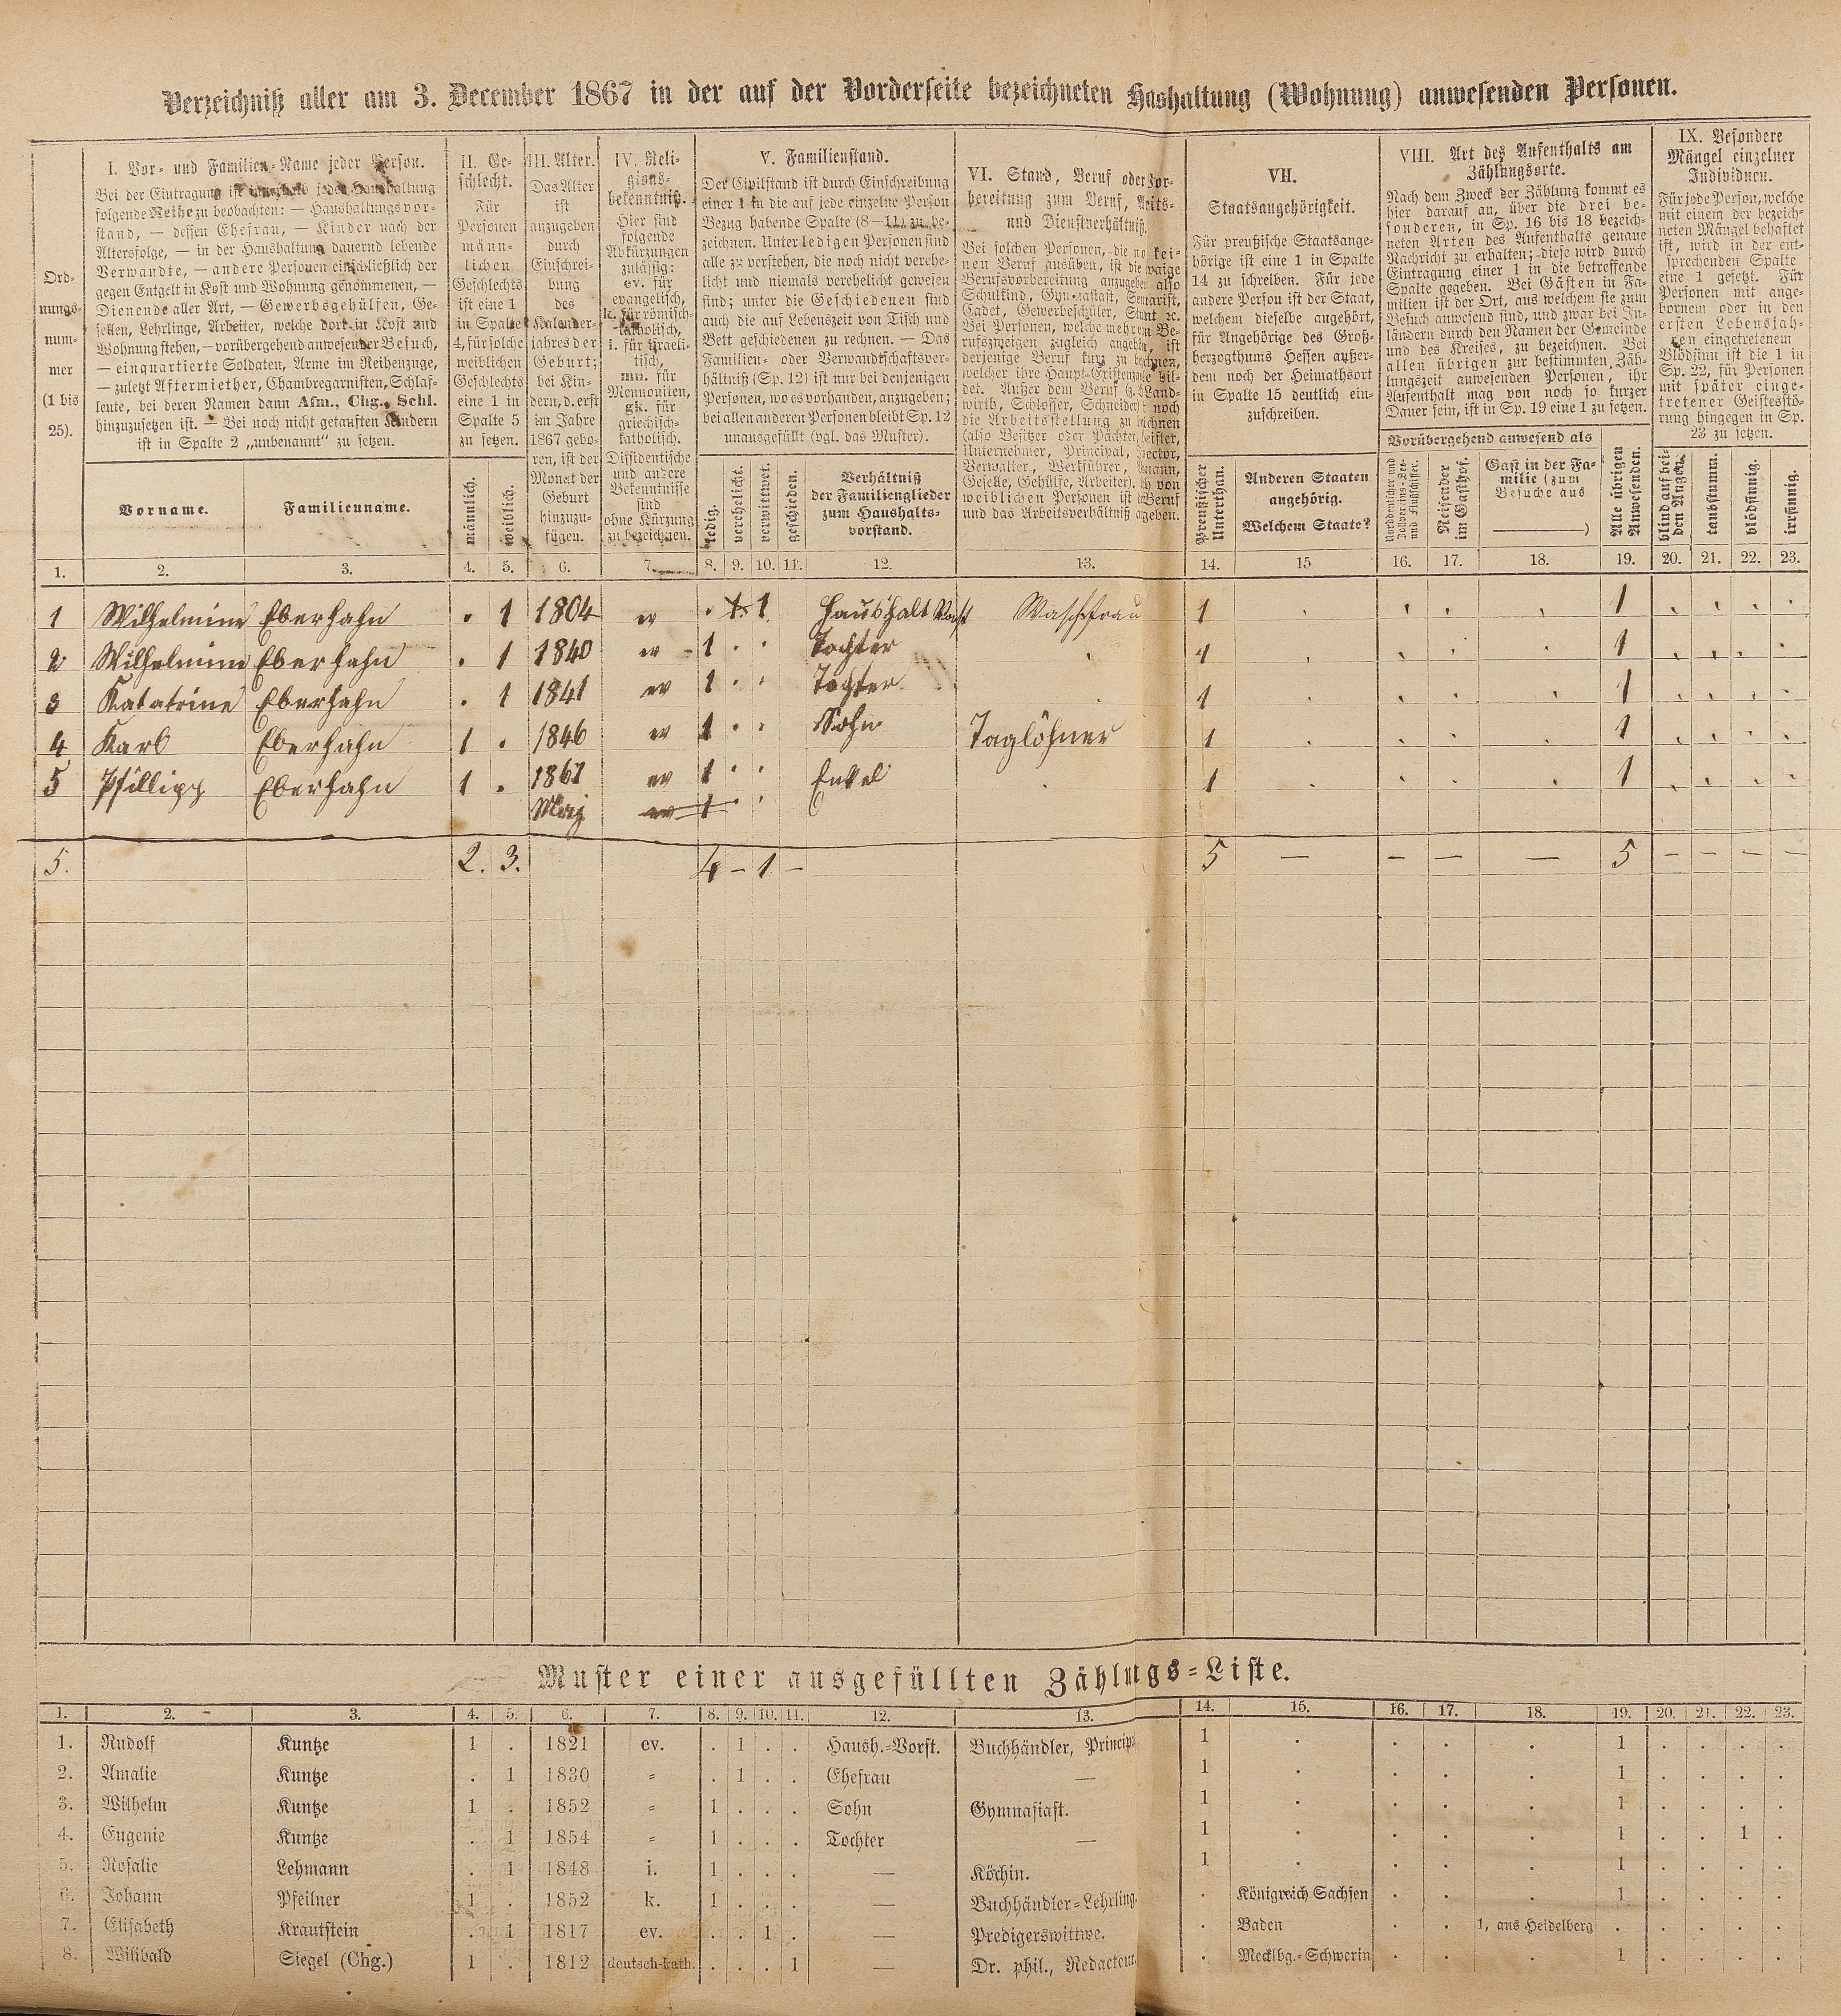 Verzeichniß aller am 3. December 1867 in der auf der Vorderseite bezeichneten Hashaltung (Wohnung) anwesenden Personen.
Ord-
nungs-
num-
mer
(1 bis
25).
I. Vor- und Familien-Name jeder Person.
Bei der Eintragung ist innerhalb jeder Haushaltung
folgende Reihe zu beobachten: — Haushaltungsvor-
stand, — dessen Ehefrau, — Kinder nach der
Altersfolge, — in der Haushaltung dauernd lebende
Verwandte, — andere Personen einschließlich der
gegen Entgelt in Kost und Wohnung genommenen, —
Dienende aller Art, — Gewerbsgehülfen, Ge-
sellen, Lehrlinge, Arbeiter, welche dort in Kost und
Wohnung stehen, — vorübergehend anwesender Besuch,
— einquartierte Soldaten, Arme im Reihenzuge,
— zuletzt Aftermiether, Chambregarnisten, Schlaf-
leute, bei deren Namen dann Afm., Chg., Schl.
hinzuzusetzen ist. — Bei noch nicht getauften Kindern
ist in Spalte 2 „unbenannt" zu setzen.
Vorname.
Familienname.
II. Ge-
schlecht.
Für
Personen
männ-
lichen
Geschlechts
ist eine 1
in Spalte
4, für solche
weiblichen
Geschlechts
eine 1 in
Spalte 5
zu setzen.
männlich.
weiblich.
III. Alter.
Das Alter
ist
anzugeben
durch
Einschrei-
bung
des
Kalender-
jahres der
Geburt;
bei Kin-
dern, d. erst
im Jahre
1867 gebo-
ren, ist der
Monat der
Geburt
hinzuzu-
fügen.
IV. Reli-
gions-
bekenntniß.
Hier sind
folgende
Abkürzungen
zulässig:
ev. für
evangelisch,
k. für römisch-
katholisch,
i. für israeli-
tisch,
mn. für
Mennoniten,
gk. für
griechisch-
katholisch.
Dissidentische
und andere
Bekenntnisse
sind
ohne Kürzung
zu bezeichnen.
V. Familienstand.
Der Civilstand ist durch Einschreibung
einer 1 in die auf jede einzelne Person
Bezug habende Spalte (8—11) zu be-
zeichnen. Unter ledigen Personen sind
alle zu verstehen, die noch nicht verehe-
licht und niemals verehelicht gewesen
sind; unter die Geschiedenen sind
auch die auf Lebenszeit von Tisch und
Bett geschiedenen zu rechnen. — Das
Familien- oder Verwandtschaftsver-
hältniß (Sp. 12) ist nur bei denjenigen
Personen, wo es vorhanden, anzugeben;
bei allen anderen Personen bleibt Sp. 12
unausgefüllt (vgl. das Muster).
ledig.
verehelicht.
verwittwet.
geschieden.
Verhältniß
der Familienglieder
zum Haushalts-
vorstand.
VI. Stand, Beruf oder Vor-
bereitung zum Beruf,
und Dienstverhältniß.
Bei solchen Personen, die no kei-
nen Beruf ausüben, ist die
Berufsvorbereitung anzugeben also
Schulkind,
Cadet, Gewerbeschüler,
Bei Personen, welche mehren Be-
rufszweigen zugleich angehören, ist
derjenige Beruf kurz zu
welcher ihre Haupt-Existenz bil-
det. Außer dem Beruf Land-
wirth, Schlosser, Schneider noch
die Arbeitsstellung zu
(also Besitzer oder Pächter,
Unternehmer, Principal,
Verwalter, Werkführer,
Geselle, Gehülfe, Arbeiter). von
weiblichen Personen ist Beruf
und das Arbeitsverhältniß
VII.
Staatsangehörigkeit.
Für preußische Staatsange-
hörige ist eine 1 in Spalte
14 zu schreiben. Für jede
andere Person ist der Staat,
welchem dieselbe angehört,
für Angehörige des Groß-
herzogthums Hessen außer-
dem noch der Heimathsort
in Spalte 15 deutlich ein-
zuschreiben.
Preußischer
Unterthan.
Anderen Staaten
angehörig.
Welchem Staate?
VIII. Art des Aufenthalts am
Zählungsorte.
Nach dem Zweck der Zählung kommt es
hier darauf an, über die drei be-
sonderen, in Sp. 16 bis 18 bezeich-
neten Arten des Aufenthalts genaue
Nachricht zu erhalten; diese wird durch
Eintragung einer 1 in die betreffende
Spalte gegeben. Bei Gästen in Fa-
milien ist der Ort, aus welchem sie zum
Besuch anwesend sind, und zwar bei In-
ländern durch den Namen der Gemeinde
und des Kreises, zu bezeichnen. Bei
allen übrigen zur bestimmten Zäh-
lungszeit anwesenden Personen, ihr
Aufenthalt mag von noch so kurzer
Dauer sein, ist in Sp. 19 eine 1 zu setzen.
Vorübergehend anwesend als
Norddeutscher und
Zollvereins-See-
und Flußschiffer.
Reisender
im Gasthof.
Gast in der Fa-
milie (zum
Besuche aus
)
Alle übrigen
Anwesenden.
IX. Besondere
Mängel einzelner
Individuen.
Für jede Person, welche
mit einem der bezeich-
neten Mängel behaftet
ist, wird in der ent-
sprechenden Spalte
eine 1 gesetzt. Für
Personen mit ange-
bornem oder in den
ersten Lebensjah-
ren eingetretenem
Blödsinn ist die 1 in
Sp. 22, für Personen
mit später einge-
tretener Geistesstö-
rung hingegen in Sp.
23 zu setzen.
blind auf bei-
den Augen.
taubstumm.
blödsinnig.
irrsinnig.
1. 2. 3. 4. 5. 6. 7. 8. 9. 10. 11. 12. 13. 14. 15 16. 17. 18. 19. 20. 21. 22. 23.
1 Wilhelmine Eberhahn . 1 1804 ev . 1 1 Haushalt Vorst Waschfrau 1 1
2 Wilhelmine Eberhahn . 1 1840 ev 1 . . Tochter 1 1
3 Katatrine Eberhahn . 1 1841 ev 1 . . Tochter 1 1
4 Karl Eberhahn 1 . 1846 ev 1 . . Sohn Taglöhner 1 1
5 Phillipp Eberhahn 1 . 1867 ev 1 . . Enkel 1 1
Mai ev 1 . .
5. 2. 3. 4 - 1 - 5 — — — — 5 — — — —
Muster einer ausgefüllten Zählungs-Liste.
1. 2. 3. 4. 5. 6. 7. 8. 9. 10. 11. 12. 13. 14. 15. 16. 17. 18. 19. 20. 21. 22. 23.
1. Rudolf Kuntze 1 . 1821 ev. . 1 . . Haush.-Vorst. Buchhändler, Princip 1 . . . . 1 . . . .
2. Amalie Kuntze . 1 1830 = . 1 . . Ehefrau — 1 . . . . 1 . . . .
3. Wilhelm Kuntze 1 . 1852 = 1 . . . Sohn Gymnasiast. 1 . . . . 1 . . . .
4. Eugenie Kuntze . 1 1854 = 1 . . . Tochter — 1 . . . . 1 . . 1 .
5. Rosalie Lehmann . 1 1848 i. 1 . . . — Köchin. 1 . . . . 1 . . . .
6. Johann Pfeilner 1 . 1852 k. 1 . . . — Buchhändler-Lehrling. . Königreich Sachsen . . . 1 . . . .
7. Elisabeth Krautstein . 1 1817 ev. . . 1 . — Predigerswittwe. . Baden . . 1, aus Heidelberg . . . . .
8. Wilibald Siegel (Chg.) 1 . 1812 deutsch-kath. . . . 1 — Dr. phil., Redacteur. . Mecklbg.-Schwerin . . . 1 . . . .